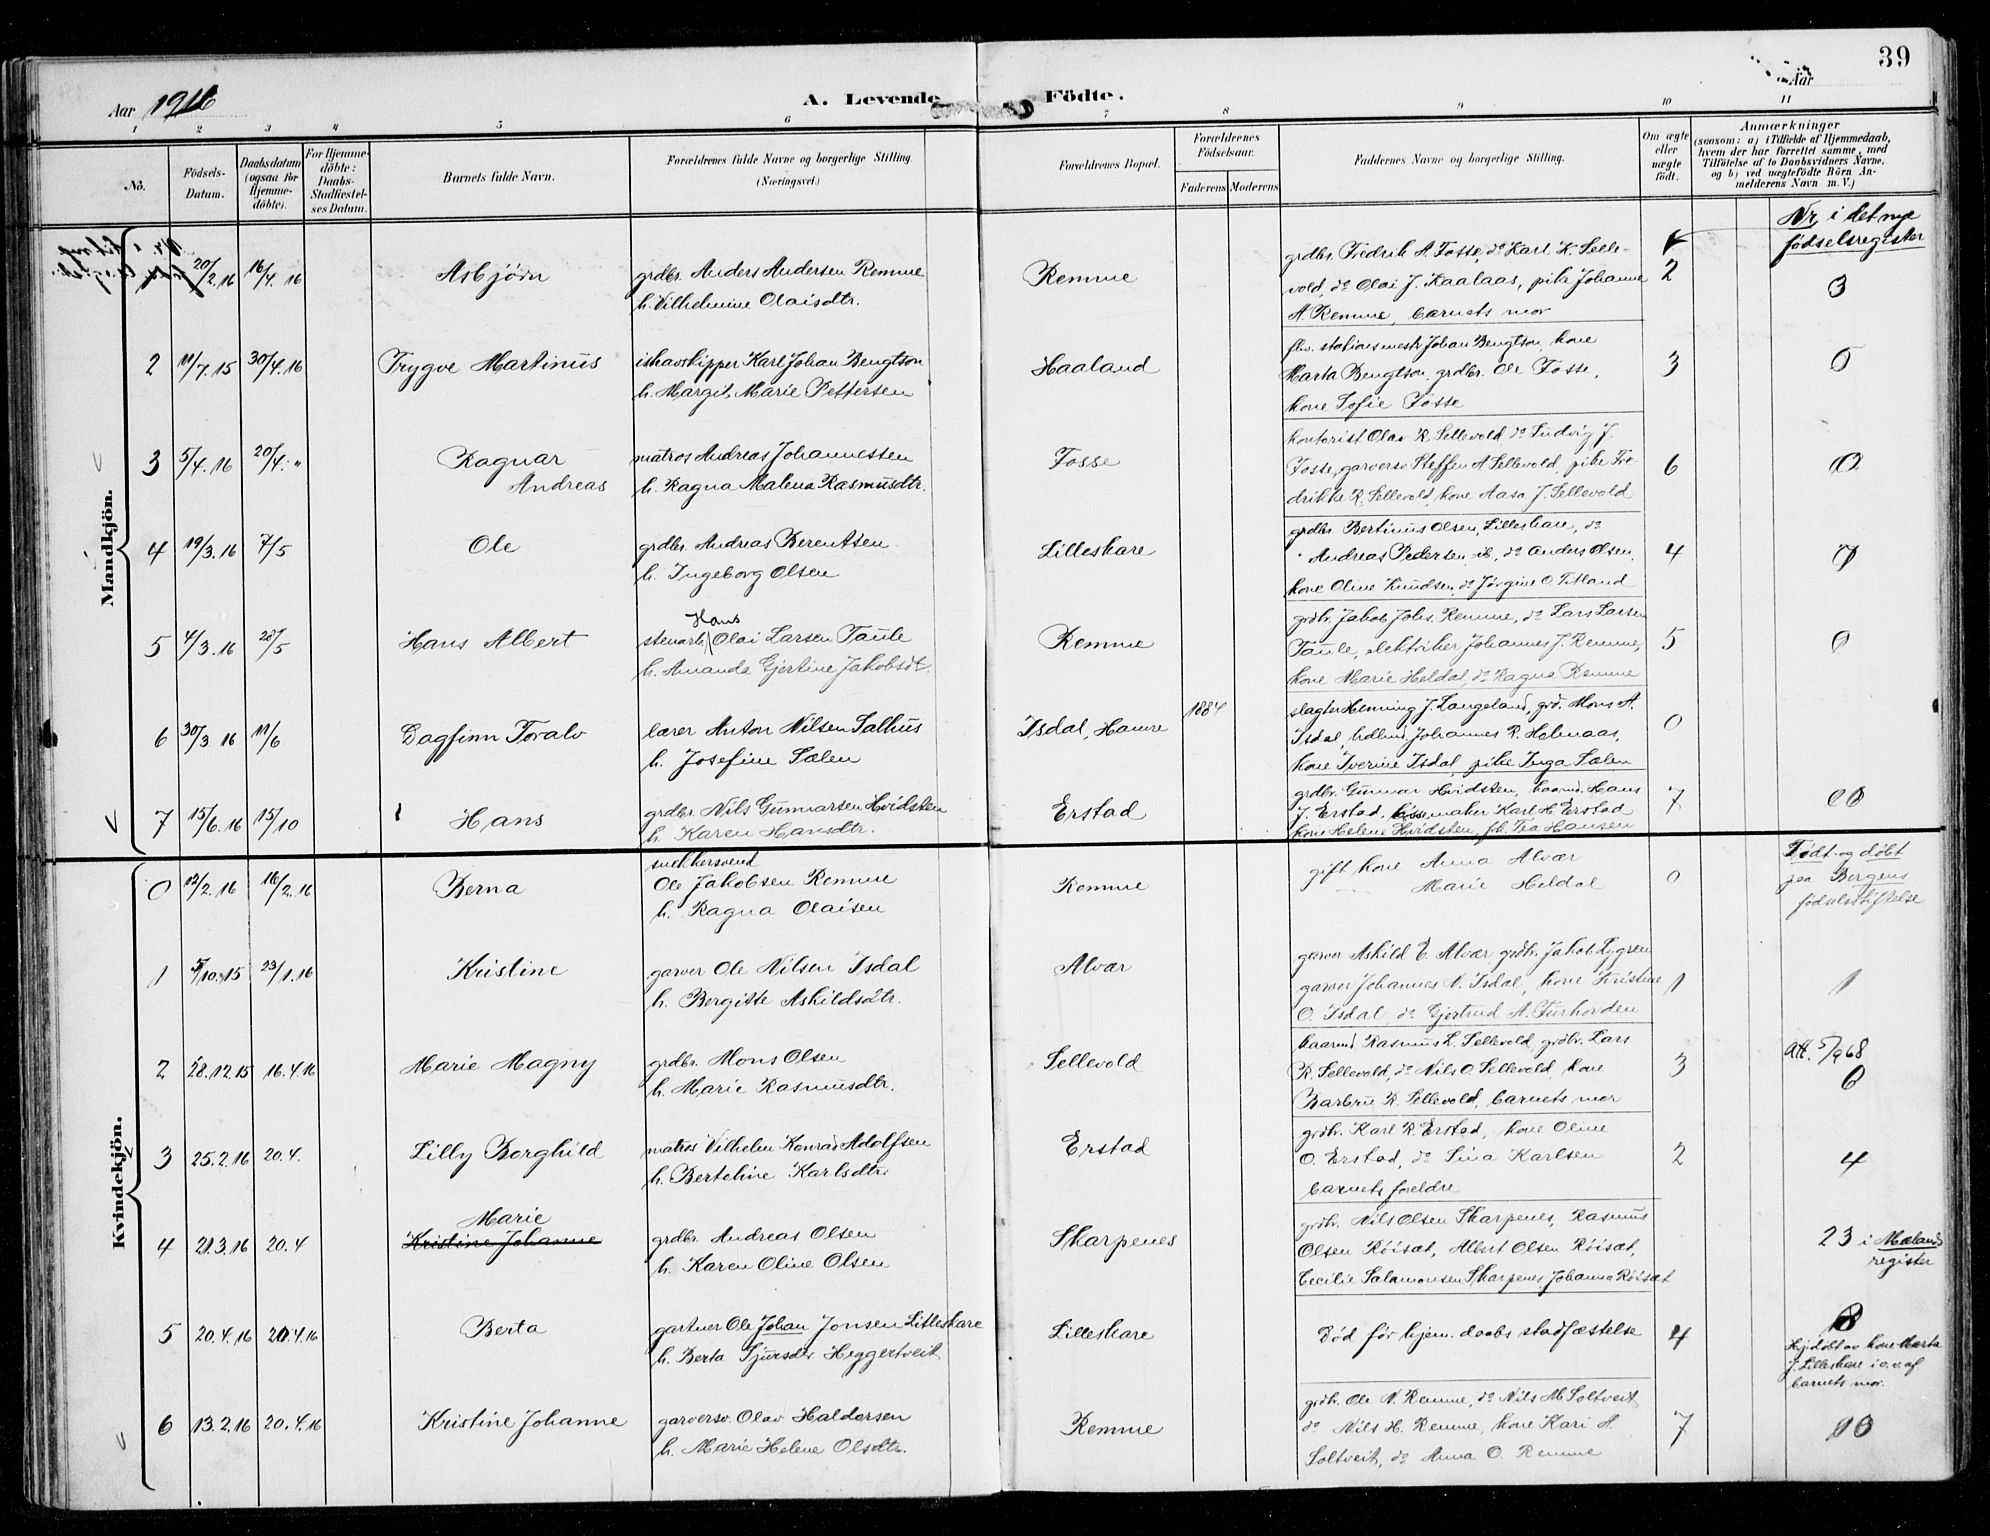 39
Aar 1916
A. Levende Födte.
Aar
1 2 3 4 5 6 7 8 9 10 11
No.
Födsels-Datum.
Daabsdatum (ogsaa for Hjemme-döbte).
For Hjemme-döbte: Daabs-Stadfæstel-ses Datum.
Barnets fulde Navn.
Forældrenes fulde Navne og borgerlige Stilling. (Næringsvei.)
Forældrenes Bopæl.
Forældrenes Födselsaar.
Faderens Moderens
Faddernes Navne og borgerlige Stilling.
Om ægte eller uægte födt.
Anmærkninger
(saasom: a) i Tilfælde af Hjemmedaab, hvem der har forrettet samme, med Tilföielse af to Daabsvidners Navne. og b) ved uægtefödte Börn An-melderens Navn m. V.)
Nr. i det nye
fødselsregister
Mandkjön.
20/2. 16 16/4. 16 Asbjørn
grdbr. Anders Andersen Remme
h. Vilhelmine Olaisdtr.
Remme
grdbr. Fredrik A. Fosse, do Karl K. Selle-
vold, do Olai J. Kaalaas, pike Johanne
A. Remme, barnets mor
2
3
2 11/7. 15 30/4. 16 Trygve Martinus
ishavskipper Karl Johan Bengtson
h. Margit Marie Pettersen
Haaland
fhv. stationsmestr. Johan Bengtson, kone
Marta Bengtson, grdbr. Ole Fosse,
kone Sofie Fosse
3
3 5/4. 16 20/4. "
Ragnar
Andreas
matros Andreas Johannessen
h. Ragna Malena Rasmusdtr.
Fosse
kontorist Olav R. Sellevold, do Ludvig J.
Fosse, garversv. Steffen A. Sellevold, pike Fre-
drikke R. Sellevold, kone Aasa J. Sellevold
6
4 19/3. 16 7/5 Ole
grdbr. Andreas Berentsen
h. Ingeborg Olsen
Lilleskare
grdbr. Bertinus Olsen, Lilleskare, do
Andreas Pedersen ib, do Anders Olsen,
kone Oline Knudsen, do Jørgine O. Titland
4
5 4/3. 16 28/5 Hans Albert
Hans
stenarb. Olai Larsen Taule
h. Amanda Gjertine Jakobsdt.
Remme
grdbr. Jakob Johs. Remme, do Lars Larsen
Taule, elektriker Johannes J. Remme,
kone Marie Heldal, do Ragna Remme
5
0
6 30/3 16 11/6 Dagfinn Toralv
lærer Anton Nilsen Salhus
h. Josefine Sælen
Isdal, Hamre
1884
slagter Henning J. Langeland, grd. Mons A.
Isdal, Johannes R. Helmaas,
kone Iverine Isdal, pike Inga Sælen
0
7 15/6. 16 15/10 Hans
grdbr. Nils Gunnarsen Hvidsten
h. Karen Hansdtr.
Erstad
grdbr. Gunnar Hvidsten, kaarmd. Hans
J. Erstad, maker Karl H. Erstad
kone Helene Hvidsten, fk. Tea Hansen
7
Kvindekjön.
0 12/2. 16 16/2. 16 Berna
snekkersvend
Ole Jakobsen Remme
h. Ragna Olaisen
Remme
gift kone Anna Alvær
Marie Heldal
0
Født og døbt
paa Bergens
fødselsstiftelse
1 5/10. 15 23/1. 16 Kristine
garver Ole Nilsen Isdal
h. Bergitte Askildsdtr.
Alvær
garver Askild E. Alvær, grdbr. Jakob Lygren
garver Johannes N. Isdal, kone Kristine
O. Isdal, do Gjertrud A. Furhovden
1
1
2 28.12.15 16.4.16 Marie Magny
grdbr. Mons Olsen
h. Marie Rasmusdtr.
Sellevold
kaarmd Rasmus L. Sellevold, grdbr. Lars
R. Sellevold, do Nils O. Sellevold, kone
Barbru R. Sellevold, barnets mor
3
Att. 5/9 68
3 25.2.16 20.4. Lilly Borghild
matros Vilhelm Konrad Adolfsen
h. Bertoline Karlsdtr.
Erstad
grdbr. Karl R. Erstad, kone Oline
O. Erstad, do Lina Karlsen
barnets foreldre
2
4
4 21.3.16 20.4
Marie
Kristine Johanne
grdbr. Andreas Olsen
h. Karen Oline Olsen
Skarpenes
grdbr. Nils Olsen Skarpenes, Rasmus
Olsen Röisæt, Albert Olsen Röisæt,
Cecilie Salamonsen Skarpenes, Johanna Röisæt
23 i Mælands
register
5 20.4.16 20.4.16 Berta
gartner Ole Johan Jonsen Lilleskare
h. Berta Sjursdtr. Heggertveit
Lilleskare
Død før hjem. daabs stadfæstelse
4
Hj. døbt av kone Marta
J. Lilleskare i o. v. af
barnets mor.
6 13.2.16 20.4.16 Kristine Johanne
garversv. Olav Haldorsen
h. Marie Helene Olsdtr.
Remme
grdbr. Ole N. Remme, do Nils M. Soltveit
do Nils H. Remme, kone Kari H.
Soltveit, do Anna O. Remme
7